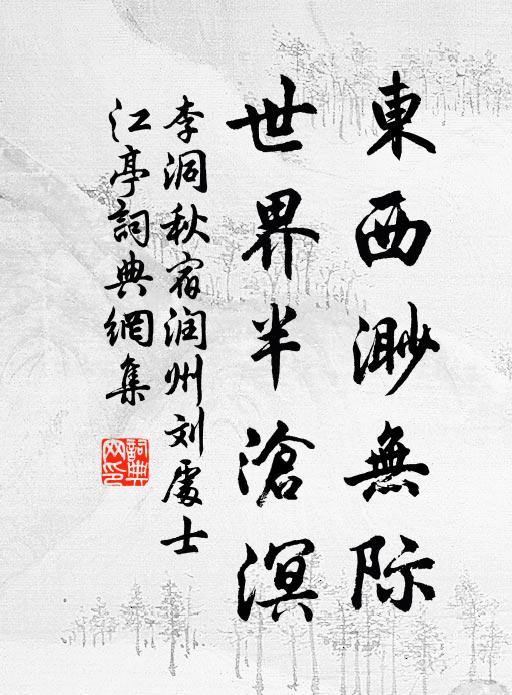 東西渺無际
世界半滄溟
李洞秋宿润州刘處士
江亭詞典網集
詞典
网印